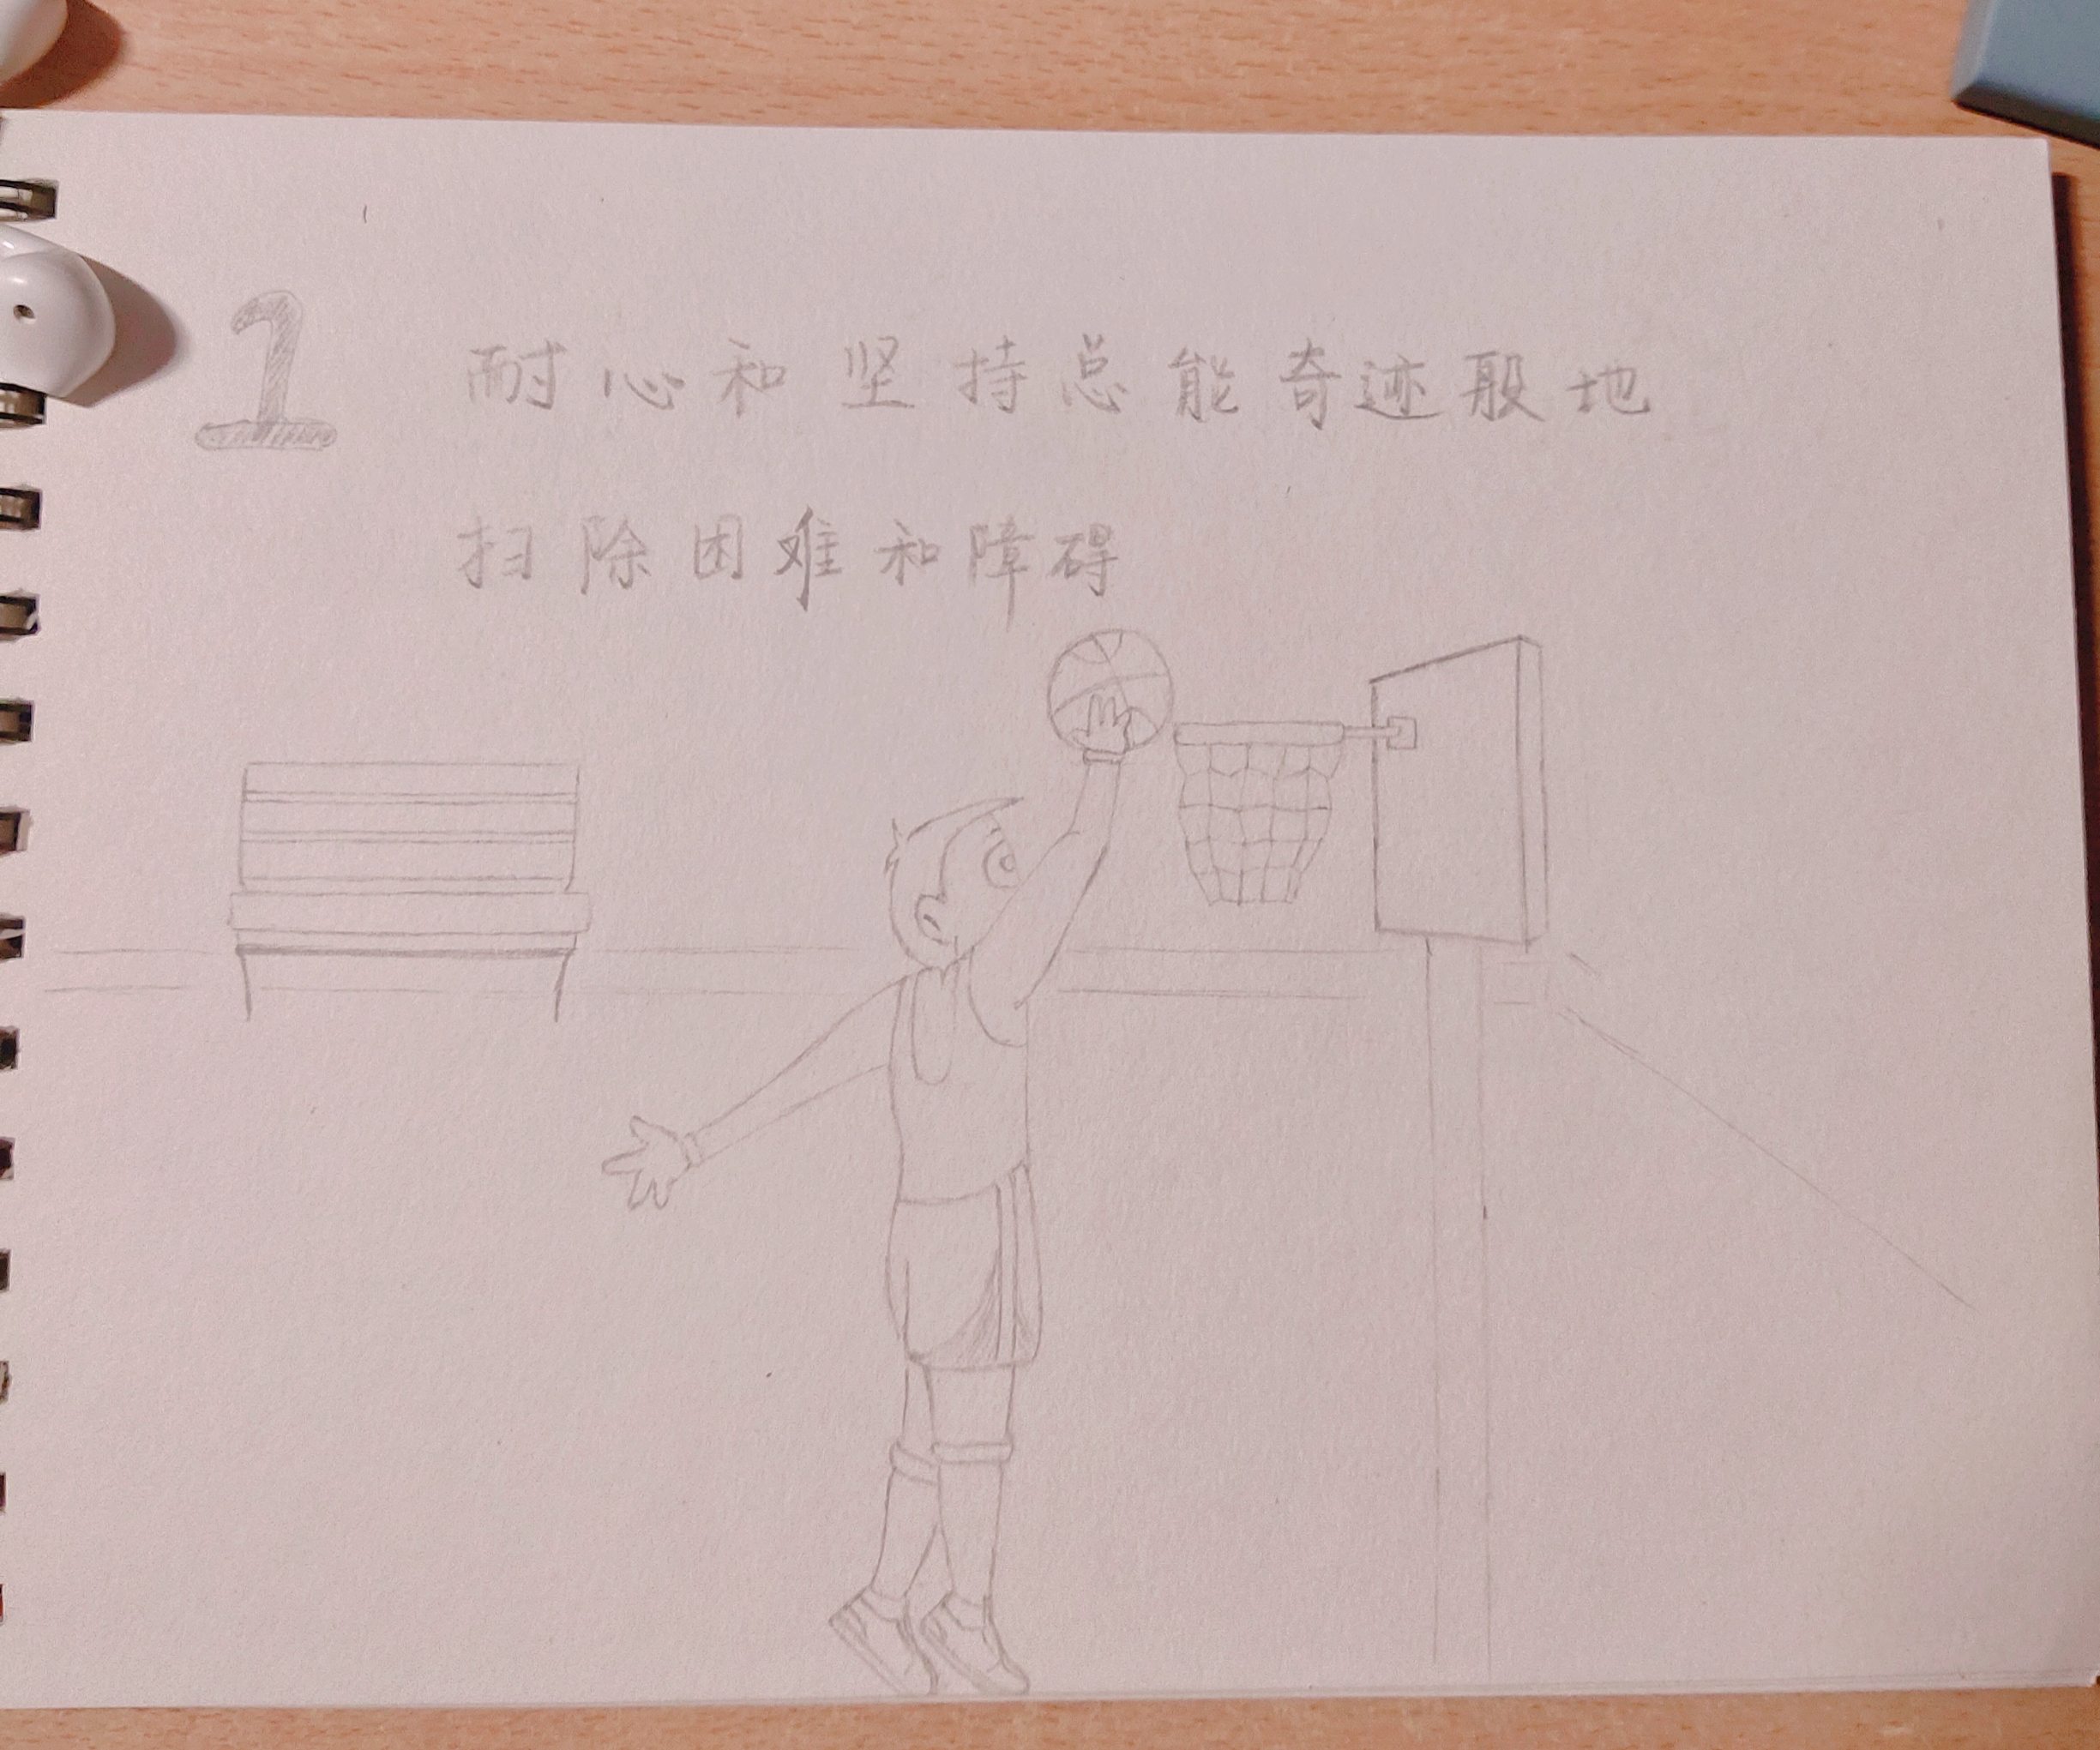 1 耐心和坚持总能奇迹般地
扫除困难和障碍